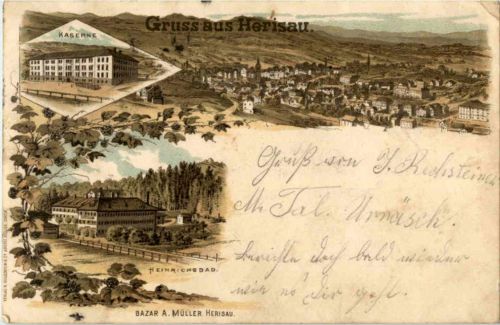 Gruss aus Herisau.
KASERNE
Gruß von J. Rechsteiner
M. Tal. Urnäsch.
berichte doch bald wieder
wie es dir geht.
HEINRICHSBAD.
BAZAR A. MÜLLER HERISAU.